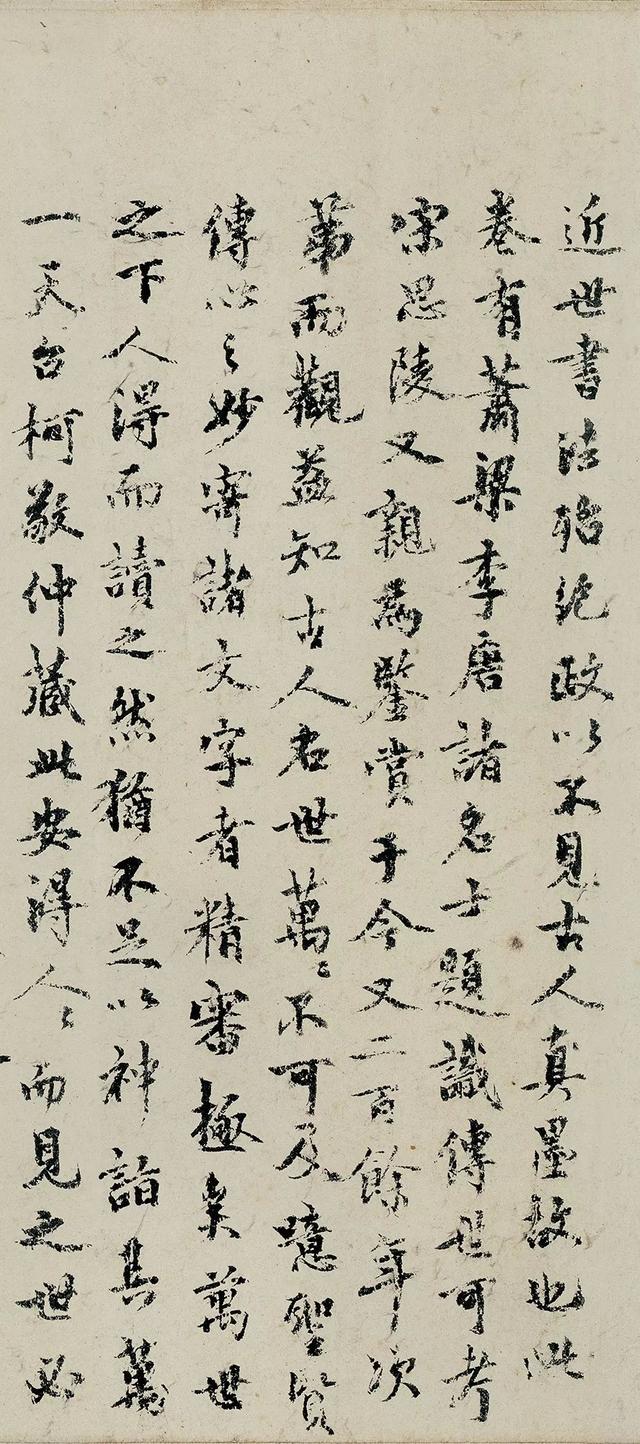 近世書法殆絶政以不見古人真墨故也此
卷有蕭梁李唐諸名士題識傳世可考
宋思陵又親為鑒賞于今又二百餘年次
第而觀益知古人名世萬〻不可及噫聖賢
傳心之妙寄諸文字者精審極矣萬世
之下人得而讀之然猶不足以神詣其萬
一天台柯敬仲藏此安得人〻而見之世必